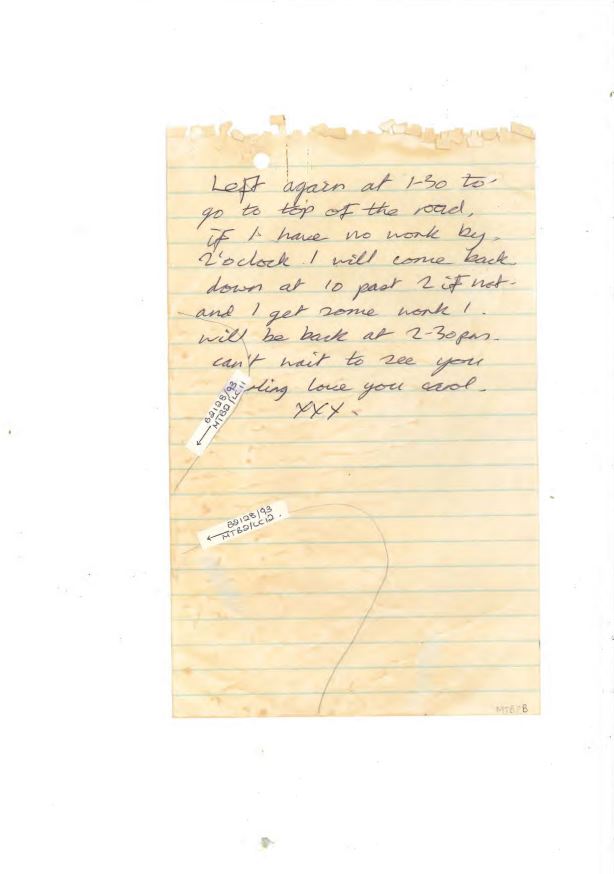 Left again at 1-30 to
go to top of the road,
if I have no work by,
2'oclock I will come back
down at 10 past 2 if not
and I get some work I.
will be back at 2-30pm.
can't wait to see you
rling love you carol.
XXX.
B2128/93
MTB2/LC11
B2128/93
MTB2/LC12.
MTB/B